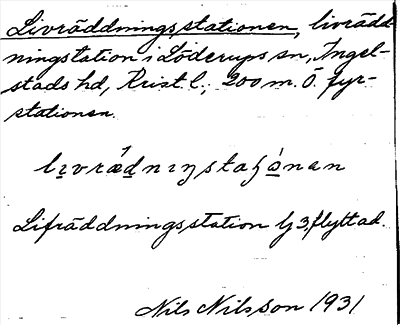 Livräddningsstationen, livrädd-
ningstation i Löderups sn, Ingel-
stads hd, Krist. l.; 200 m. Ö. fyr-
stationen.
Lifräddningsstation lj 3, flyttad.
Nils Nilsson 1931